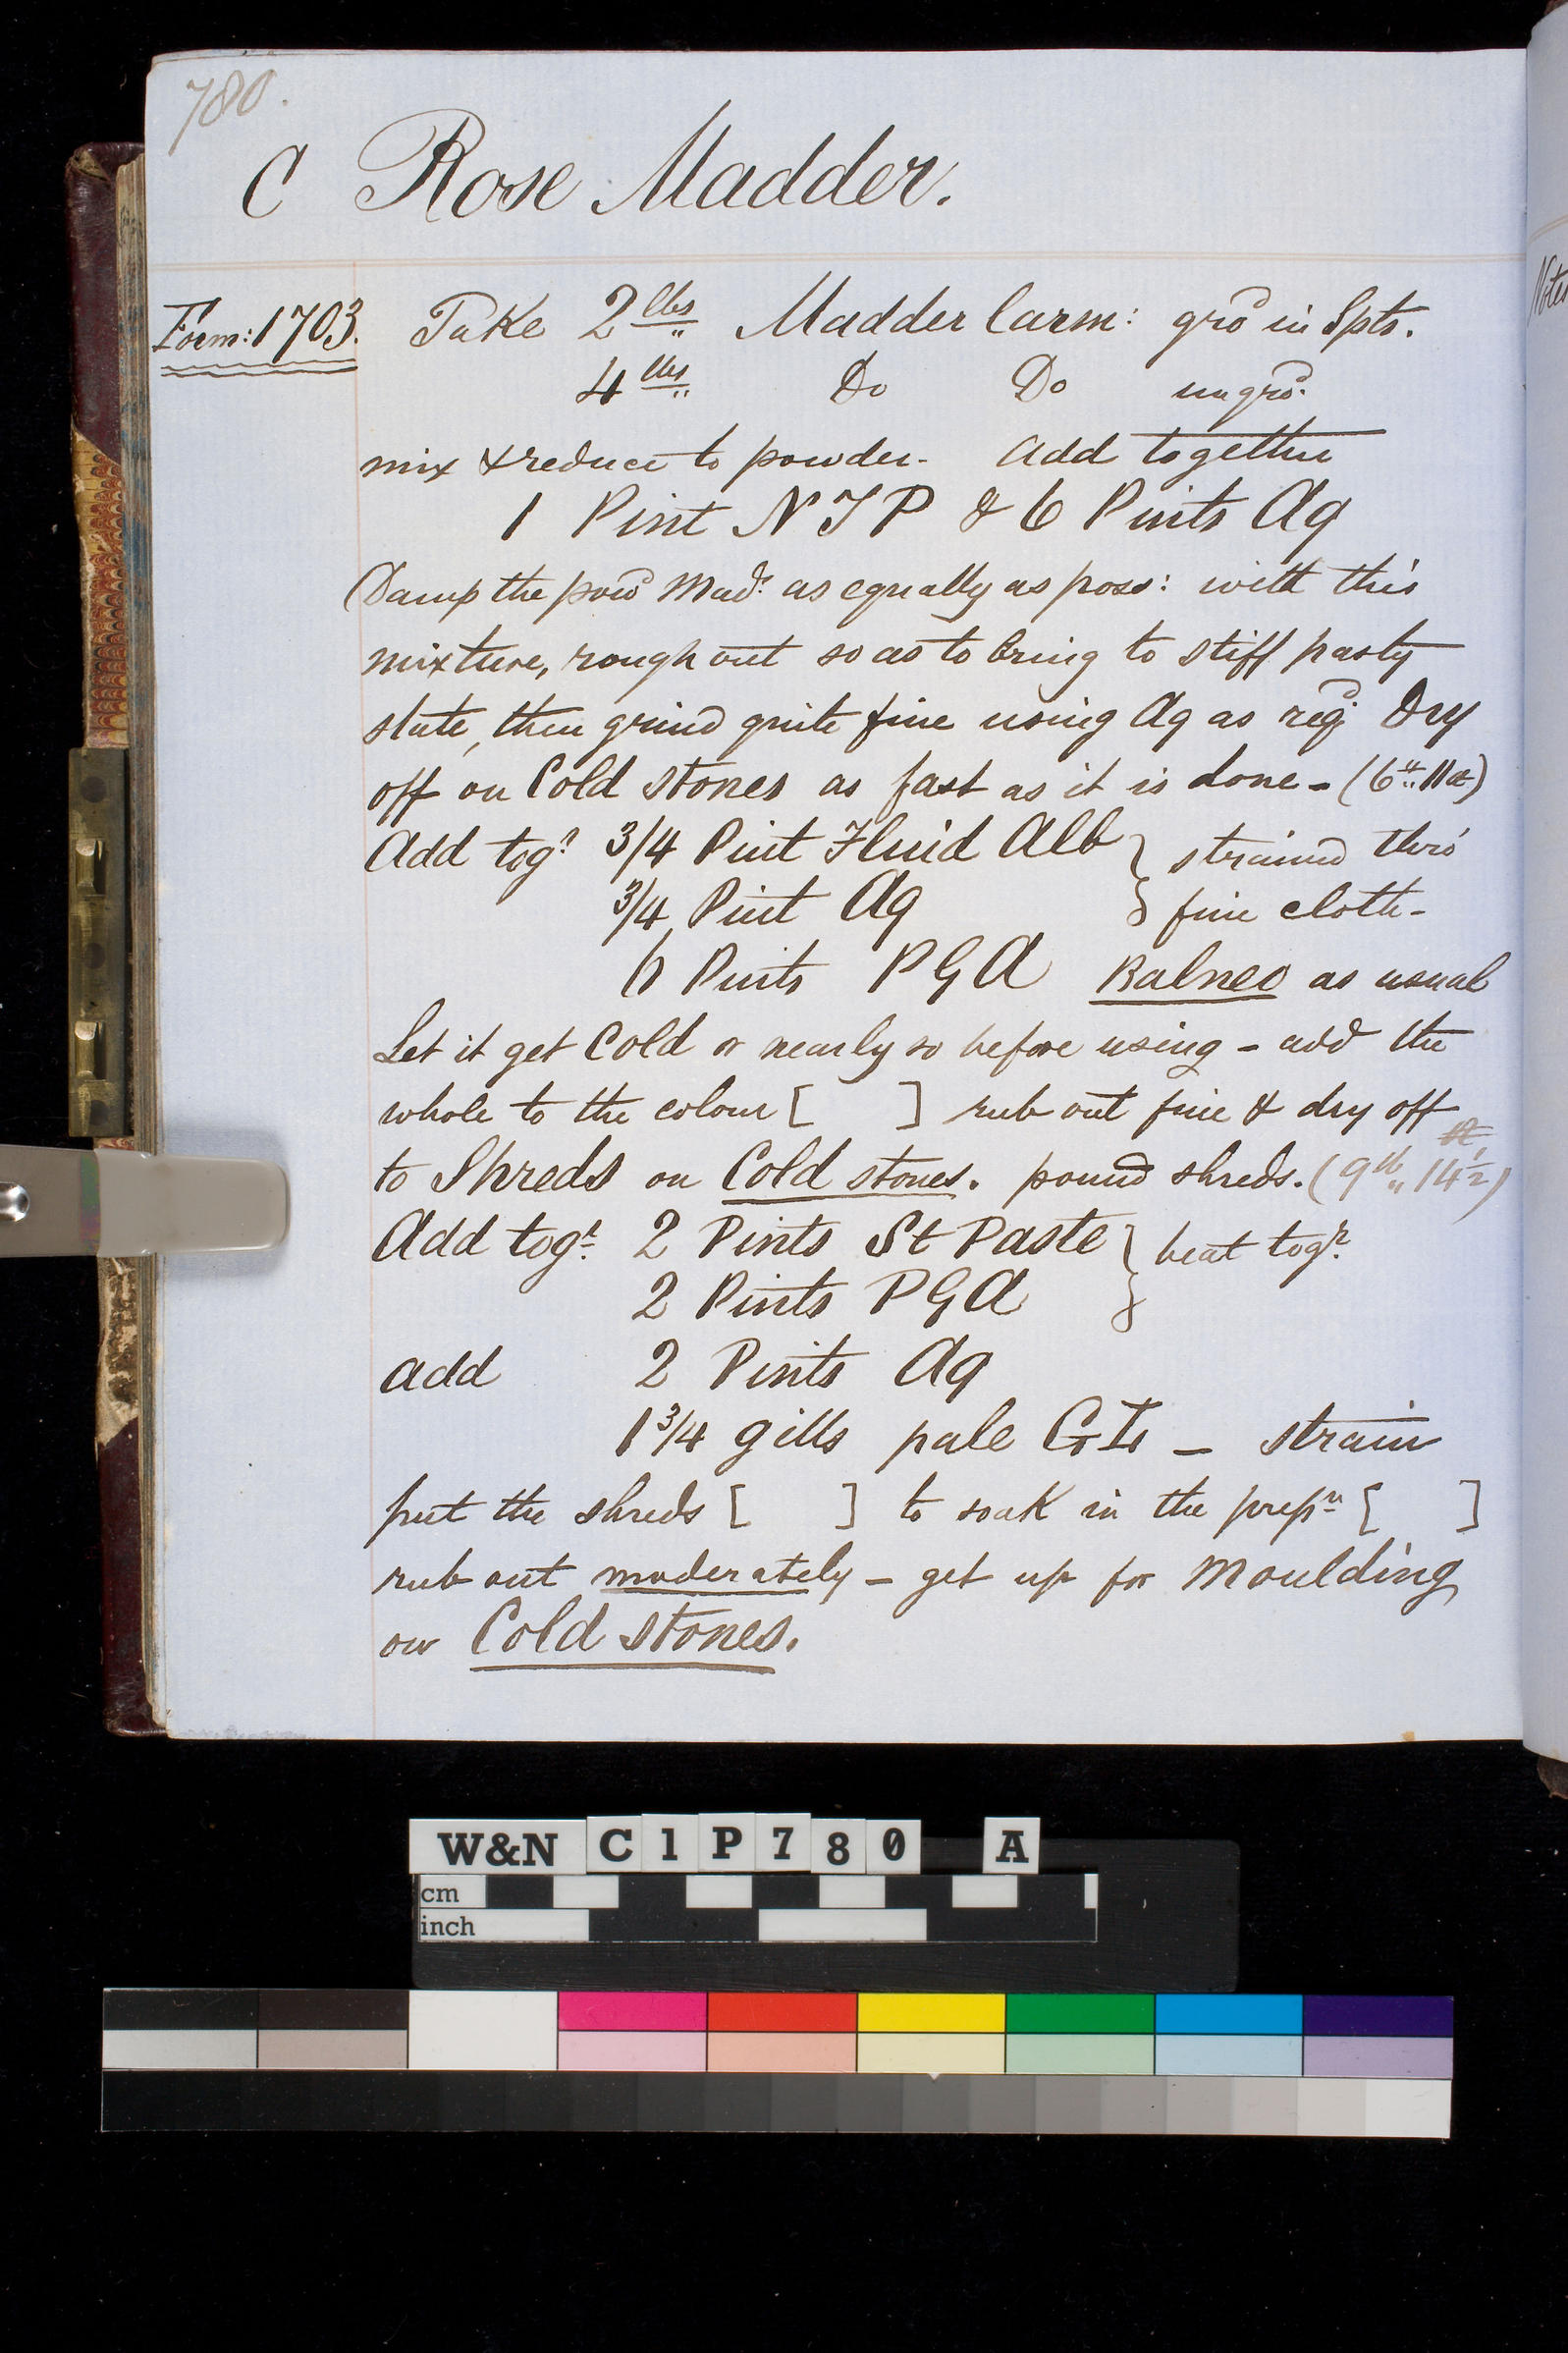 780.
C Rose Madder.
Form: 1703. Take 2 lbs Madder Carm: gro^d in Spts.
4 lbs Do Do ungro^d.
mix & reduce to powder - Add together
1 Pint N T P & 6 Pints Aq
Damp the pow^d Mad^r as equally as poss: with this
mixture, rough out so as to bring to stiff pasty
state, then grind quite fine using Aq as req^d Dry
off on Cold stones as fast as it is done -
Add tog^r 3/4 Pint Fluid Alb } strained thro'
3/4 Pint Aq } fine cloth -
6 Pints P G A Balneo as usual
Let it get Cold or nearly so before using - add the
whole to the colour [ ] rub out fine & dry off
to Shreds on Cold stones. pound shreds. (9 lb 14 1/2)
Add tog^r 2 Pints St Paste } beat tog^r
2 Pints P G A }
add 2 Pints Aq
1 3/4 gills pale - strain
put the shreds [ ] to soak in the prep^n [ ]
rub out moderately - get up for Moulding
on Cold stones.
Notes
W&N C1P780 A
cm
inch